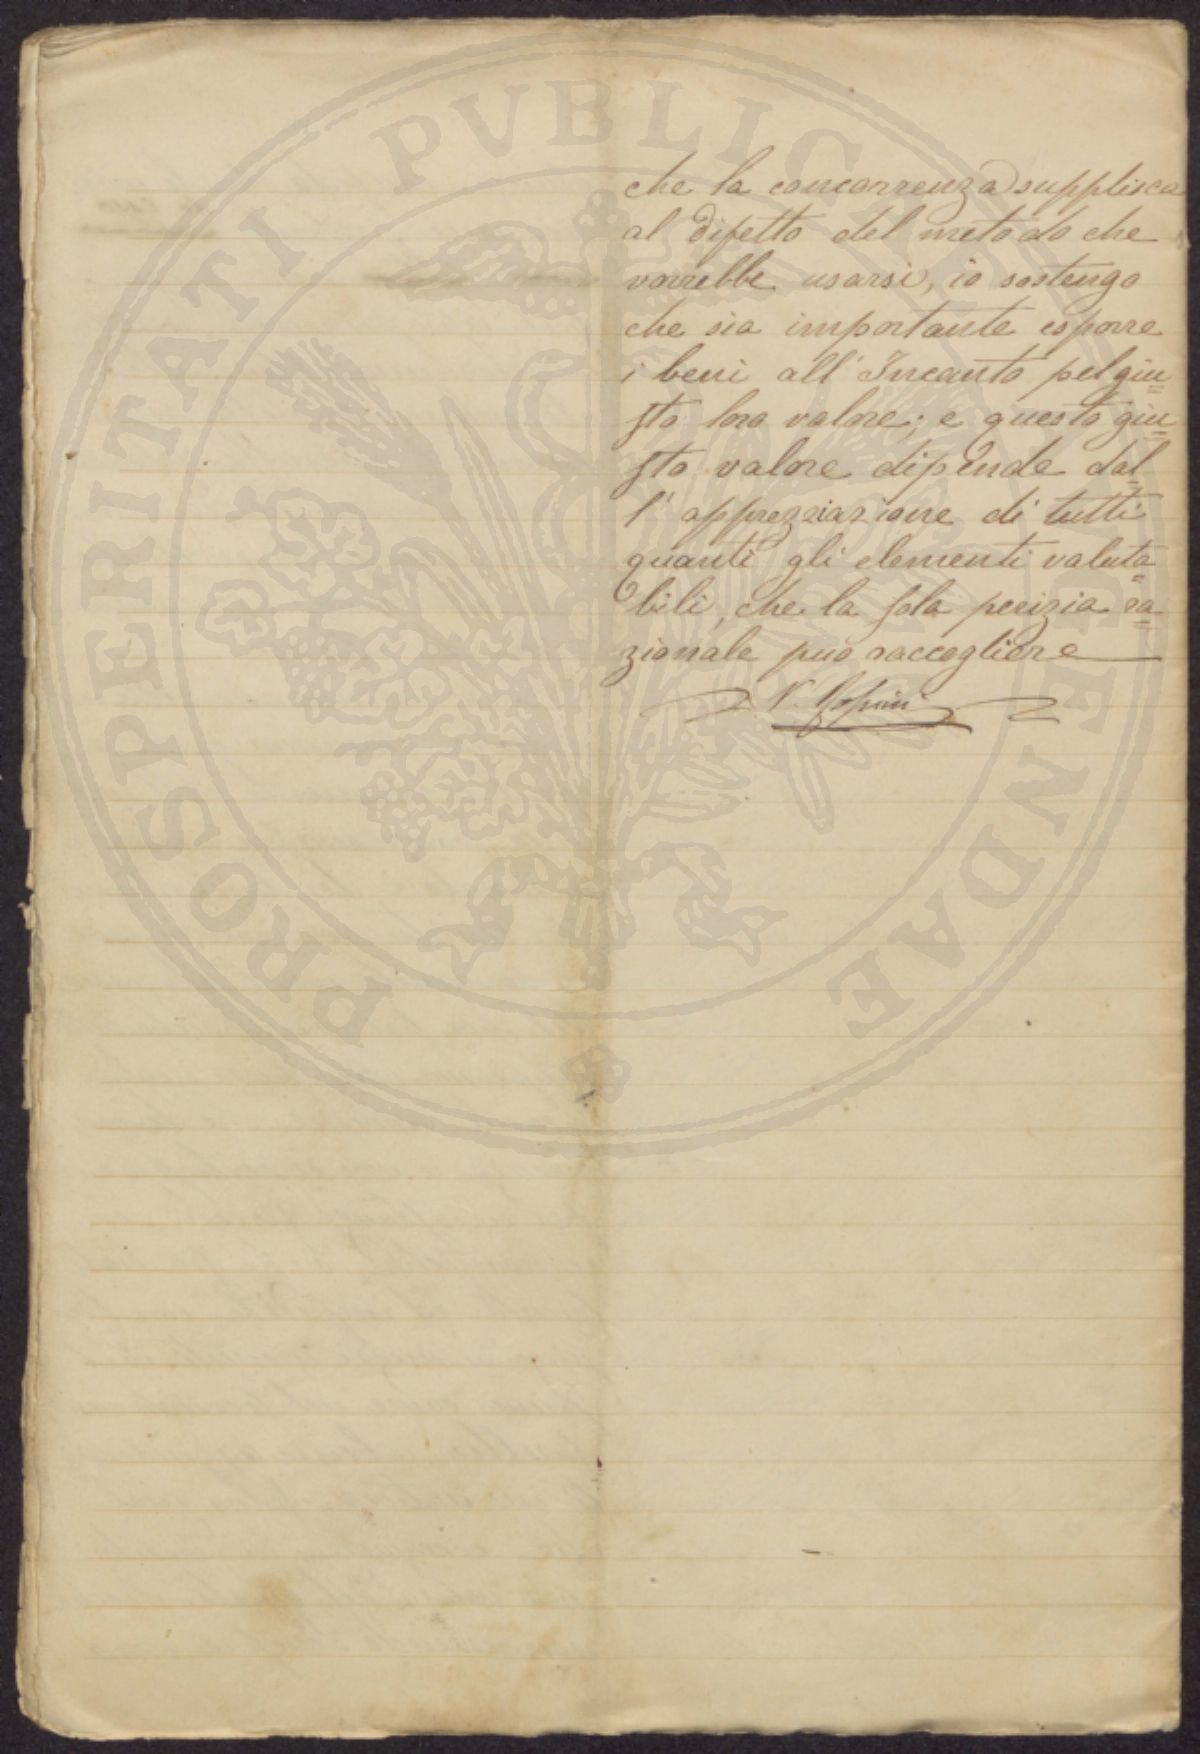 PROSPERITATI PVBLICAE AVGENDAE
che la concorrenza supplisca
al difetto del metodo che
vorrebbe usarsi, io sostengo
che sia importante esporre
i beni all' Incanto pel giu=
sto loro valore; e questo giu=
sto valore dipende dal=
l' apprezziazione di tutti
quanti gli elementi valuta=
bili, che la sola perizia ra=
zionale può raccogliere